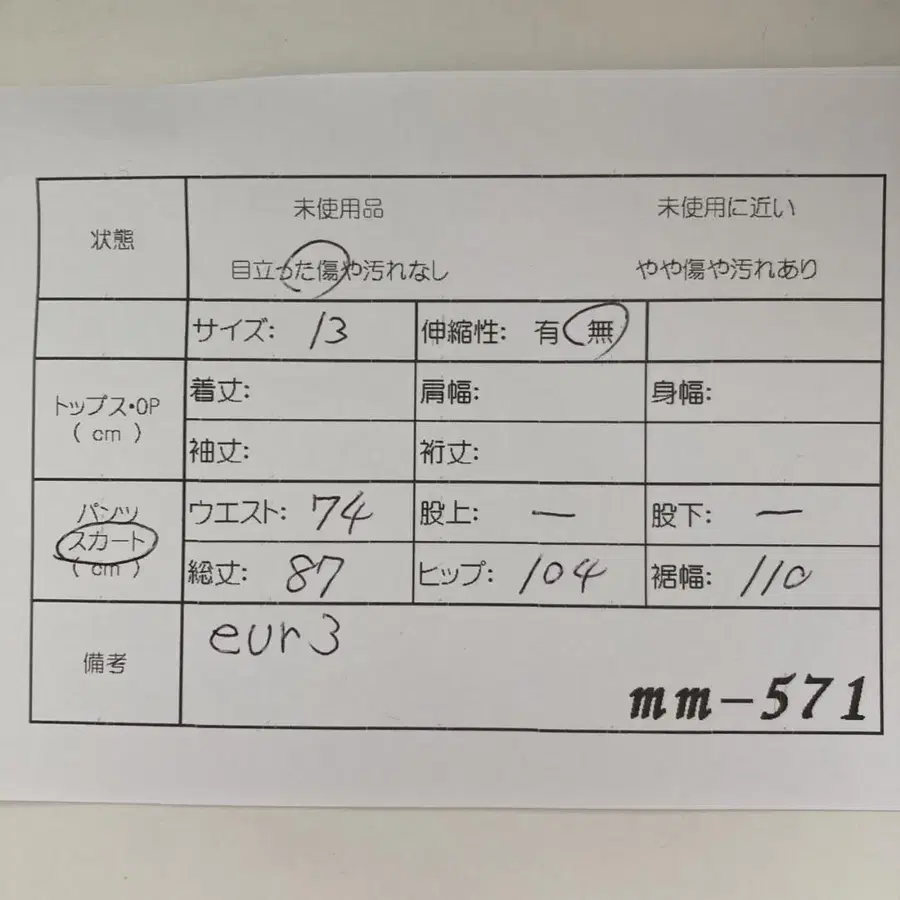 状態
未使用品 未使用に近い
目立った傷や汚れなし やや傷や汚れあり
サイズ: 13 伸縮性: 有 無
トップス・OP
( cm )
着丈: 肩幅: 身幅:
袖丈: 裄丈:
パンツ
スカート
( cm )
ウエスト: 74 股上: — 股下: —
総丈: 87 ヒップ: 104 裾幅: 110
備考
eur3
mm-571